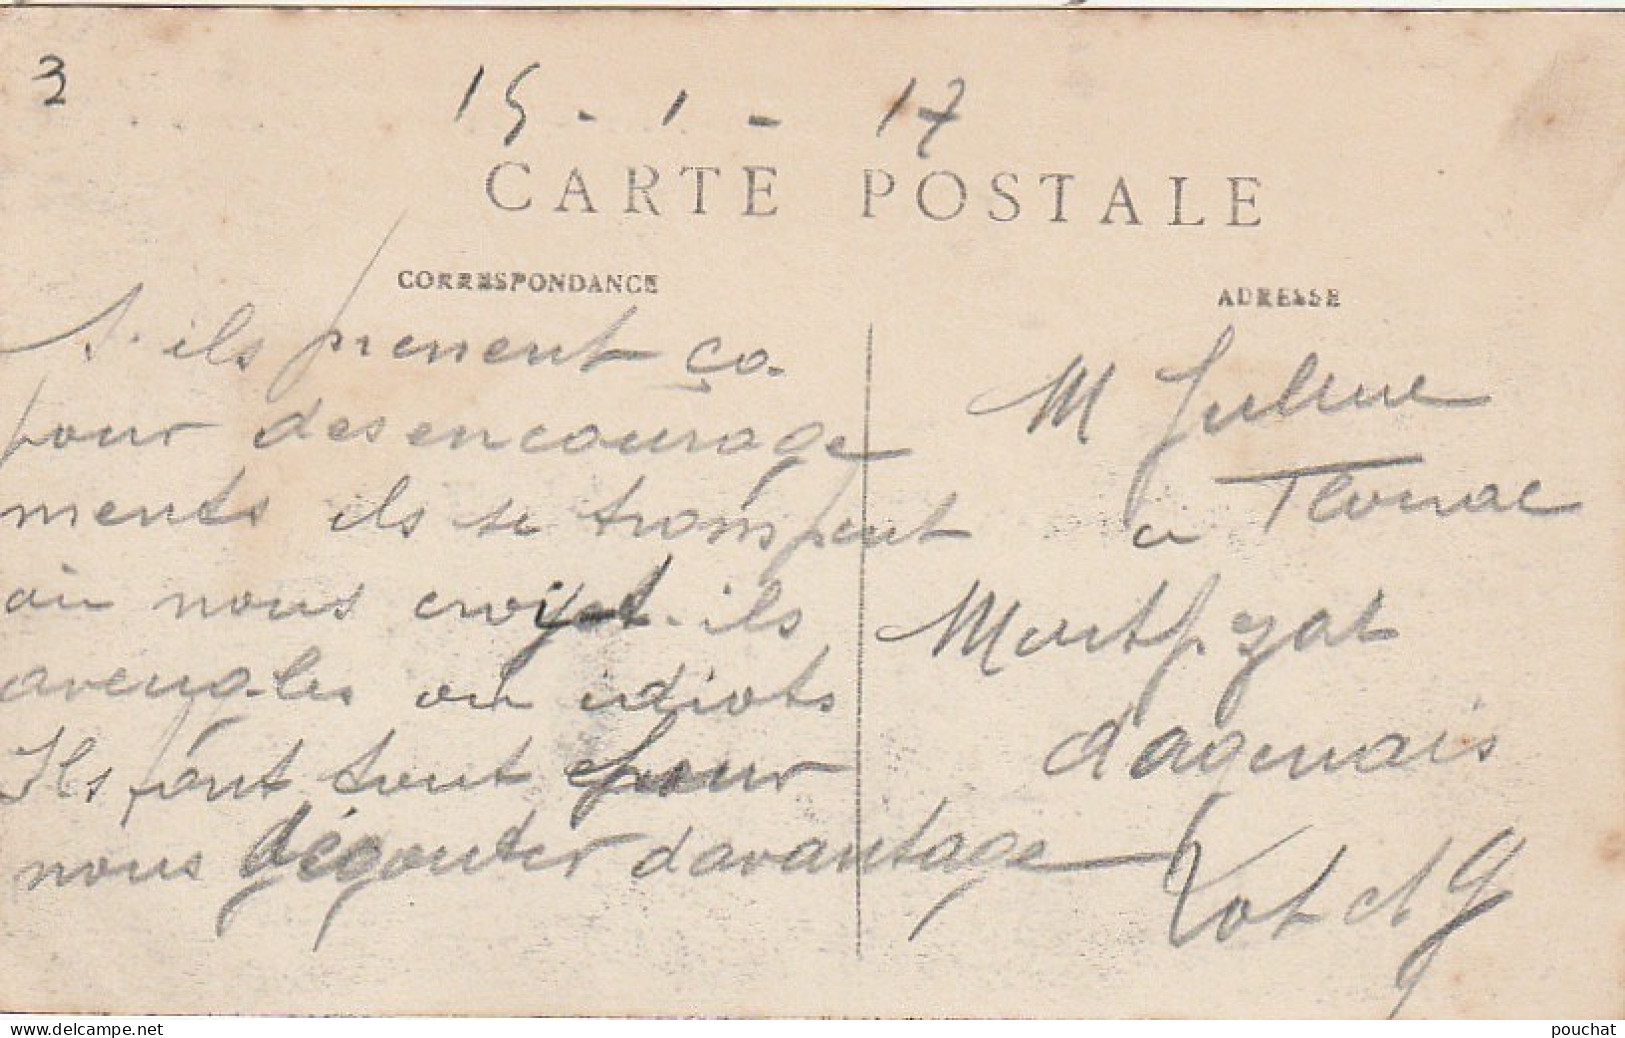 3
15 - 1 - 17
CARTE POSTALE
CORRESPONDANCE
S. ils prenent ça.
pour des encourage
ments ils se trompent
ou nous croyet. ils
aveugles ou idiots
Ils font tout pour
nous dégouter davantage
ADRESSE
M
a
Montpezat
d'agenais
Lot et G
pouchat
www.delcampe.net